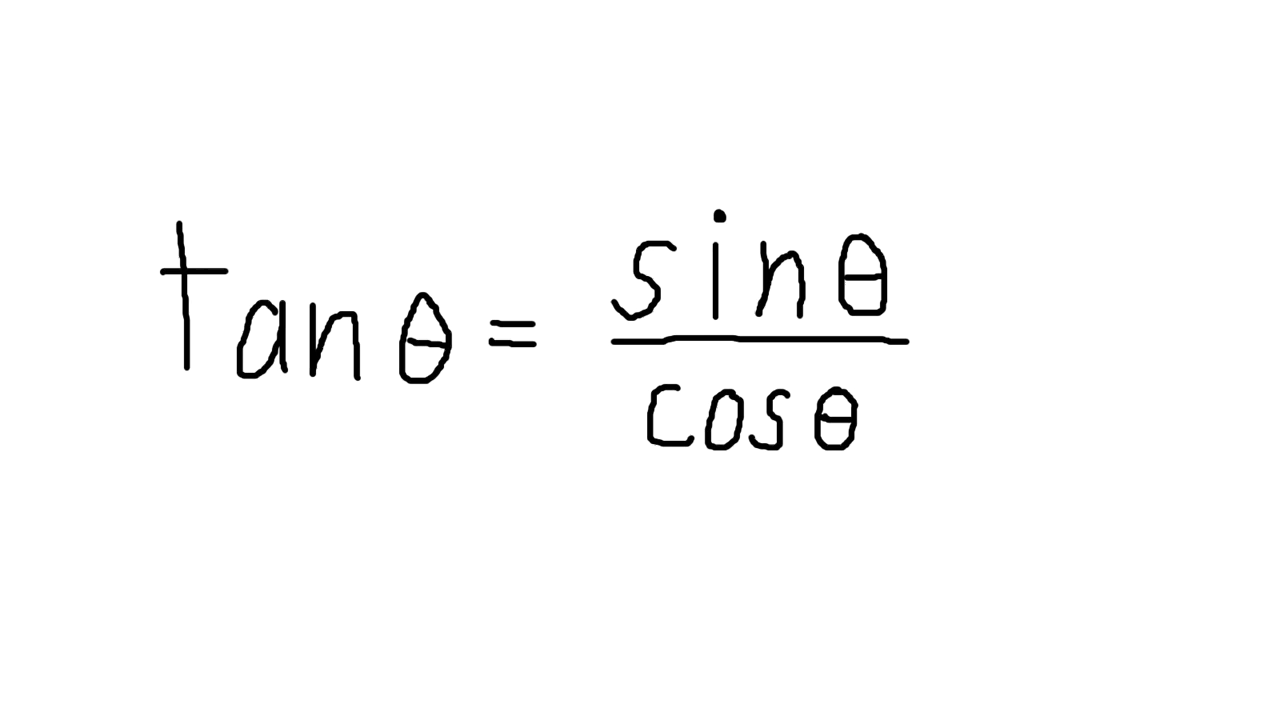 tanθ = sinθ/cosθ